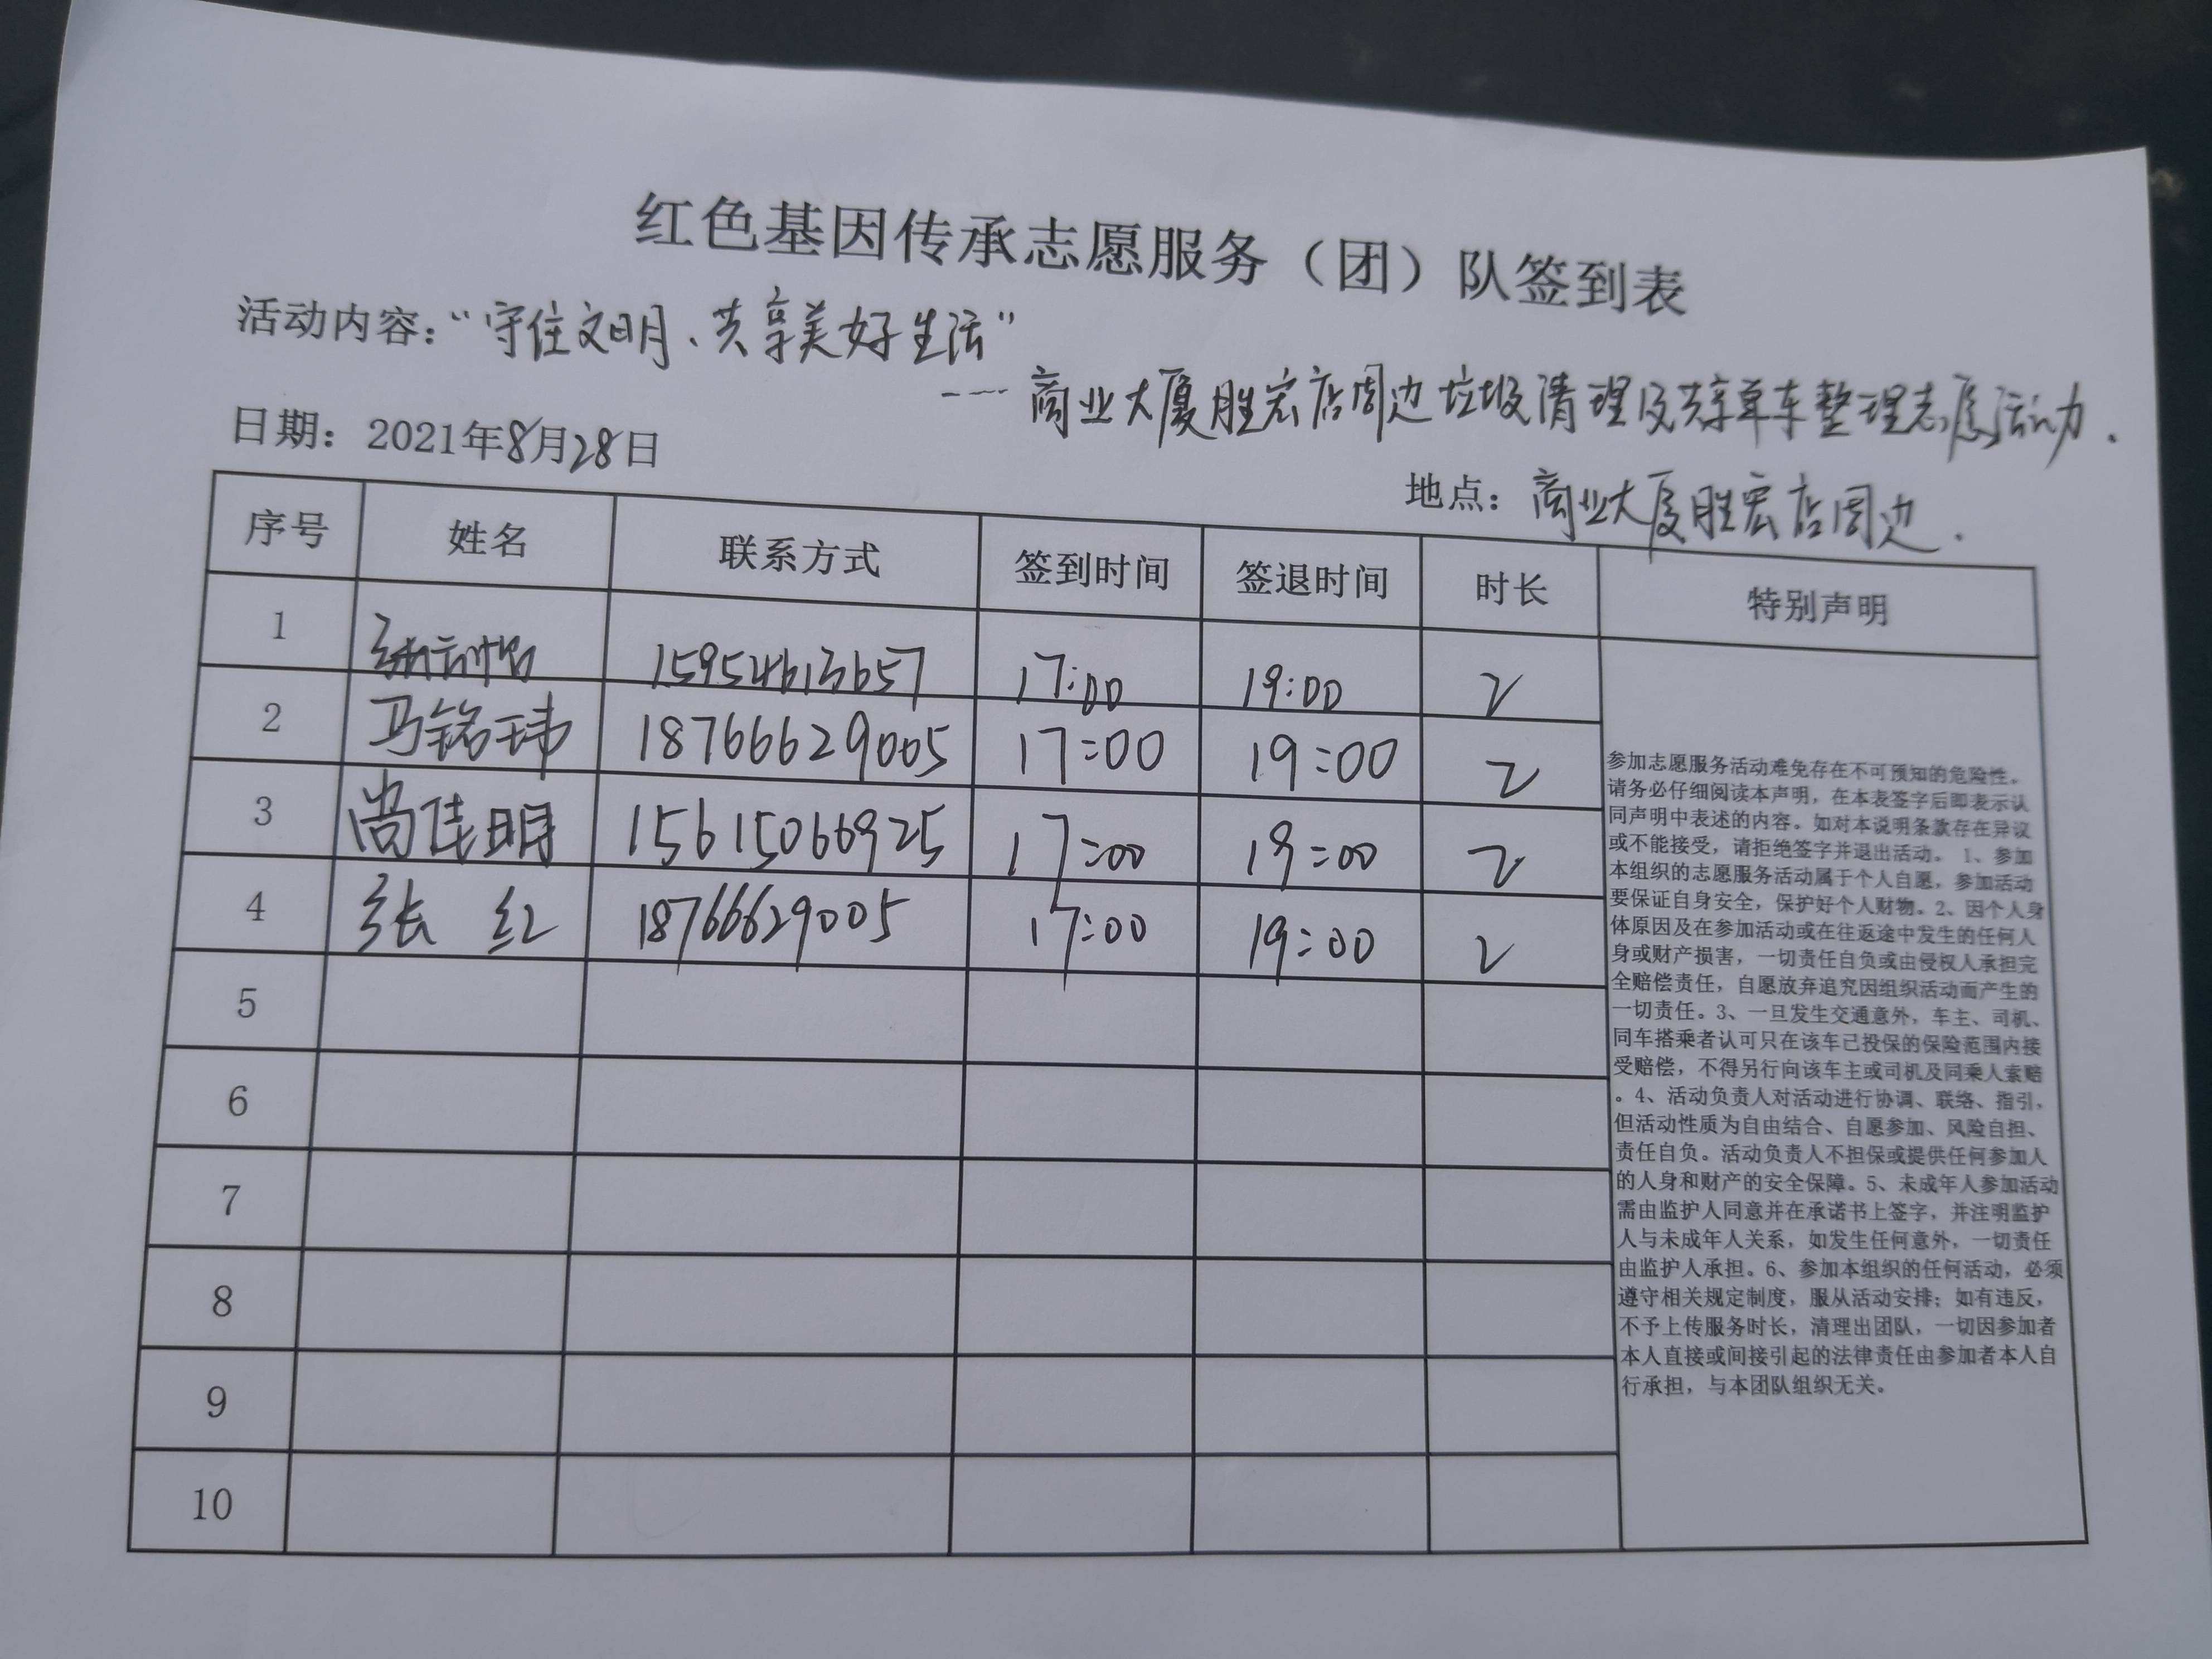 红色基因传承志愿服务（团）队签到表
活动内容：“守住文明、共享美好生活”
---商业大厦胜宏店周边垃圾清理及共享单车整理志愿活动.
日期：2021年8月28日
地点：商业大厦胜宏店周边.
序号 姓名 联系方式 签到时间 签退时间 时长 特别声明
1 15954613657 17:00 19:00 2
2 马铭玮 18766629005 17:00 19:00 2
3 尚佳明 15615066925 17:00 19:00 2
4 张红 18766629005 17:00 19:00 2
5
6
7
8
9
10
参加志愿服务活动难免存在不可预知的危险性。
请务必仔细阅读本声明，在本表签字后即表示认
同声明中表述的内容。如对本说明条款存在异议
或不能接受，请拒绝签字并退出活动。 1、参加
本组织的志愿服务活动属于个人自愿，参加活动
要保证自身安全，保护好个人财物。2、因个人身
体原因及在参加活动或在往返途中发生的任何人
身或财产损害，一切责任自负或由侵权人承担完
全赔偿责任，自愿放弃追究因组织活动而产生的
一切责任。3、一旦发生交通意外，车主、司机、
同车搭乘者认可只在该车已投保的保险范围内接
受赔偿，不得另行向该车主或司机及同乘人索赔
。4、活动负责人对活动进行协调、联络、指引，
但活动性质为自由结合、自愿参加、风险自担、
责任自负。活动负责人不担保或提供任何参加人
的人身和财产的安全保障。5、未成年人参加活动
需由监护人同意并在承诺书上签字，并注明监护
人与未成年人关系，如发生任何意外，一切责任
由监护人承担。6、参加本组织的任何活动，必须
遵守相关规定制度，服从活动安排；如有违反，
不予上传服务时长，清理出团队，一切因参加者
本人直接或间接引起的法律责任由参加者本人自
行承担，与本团队组织无关。